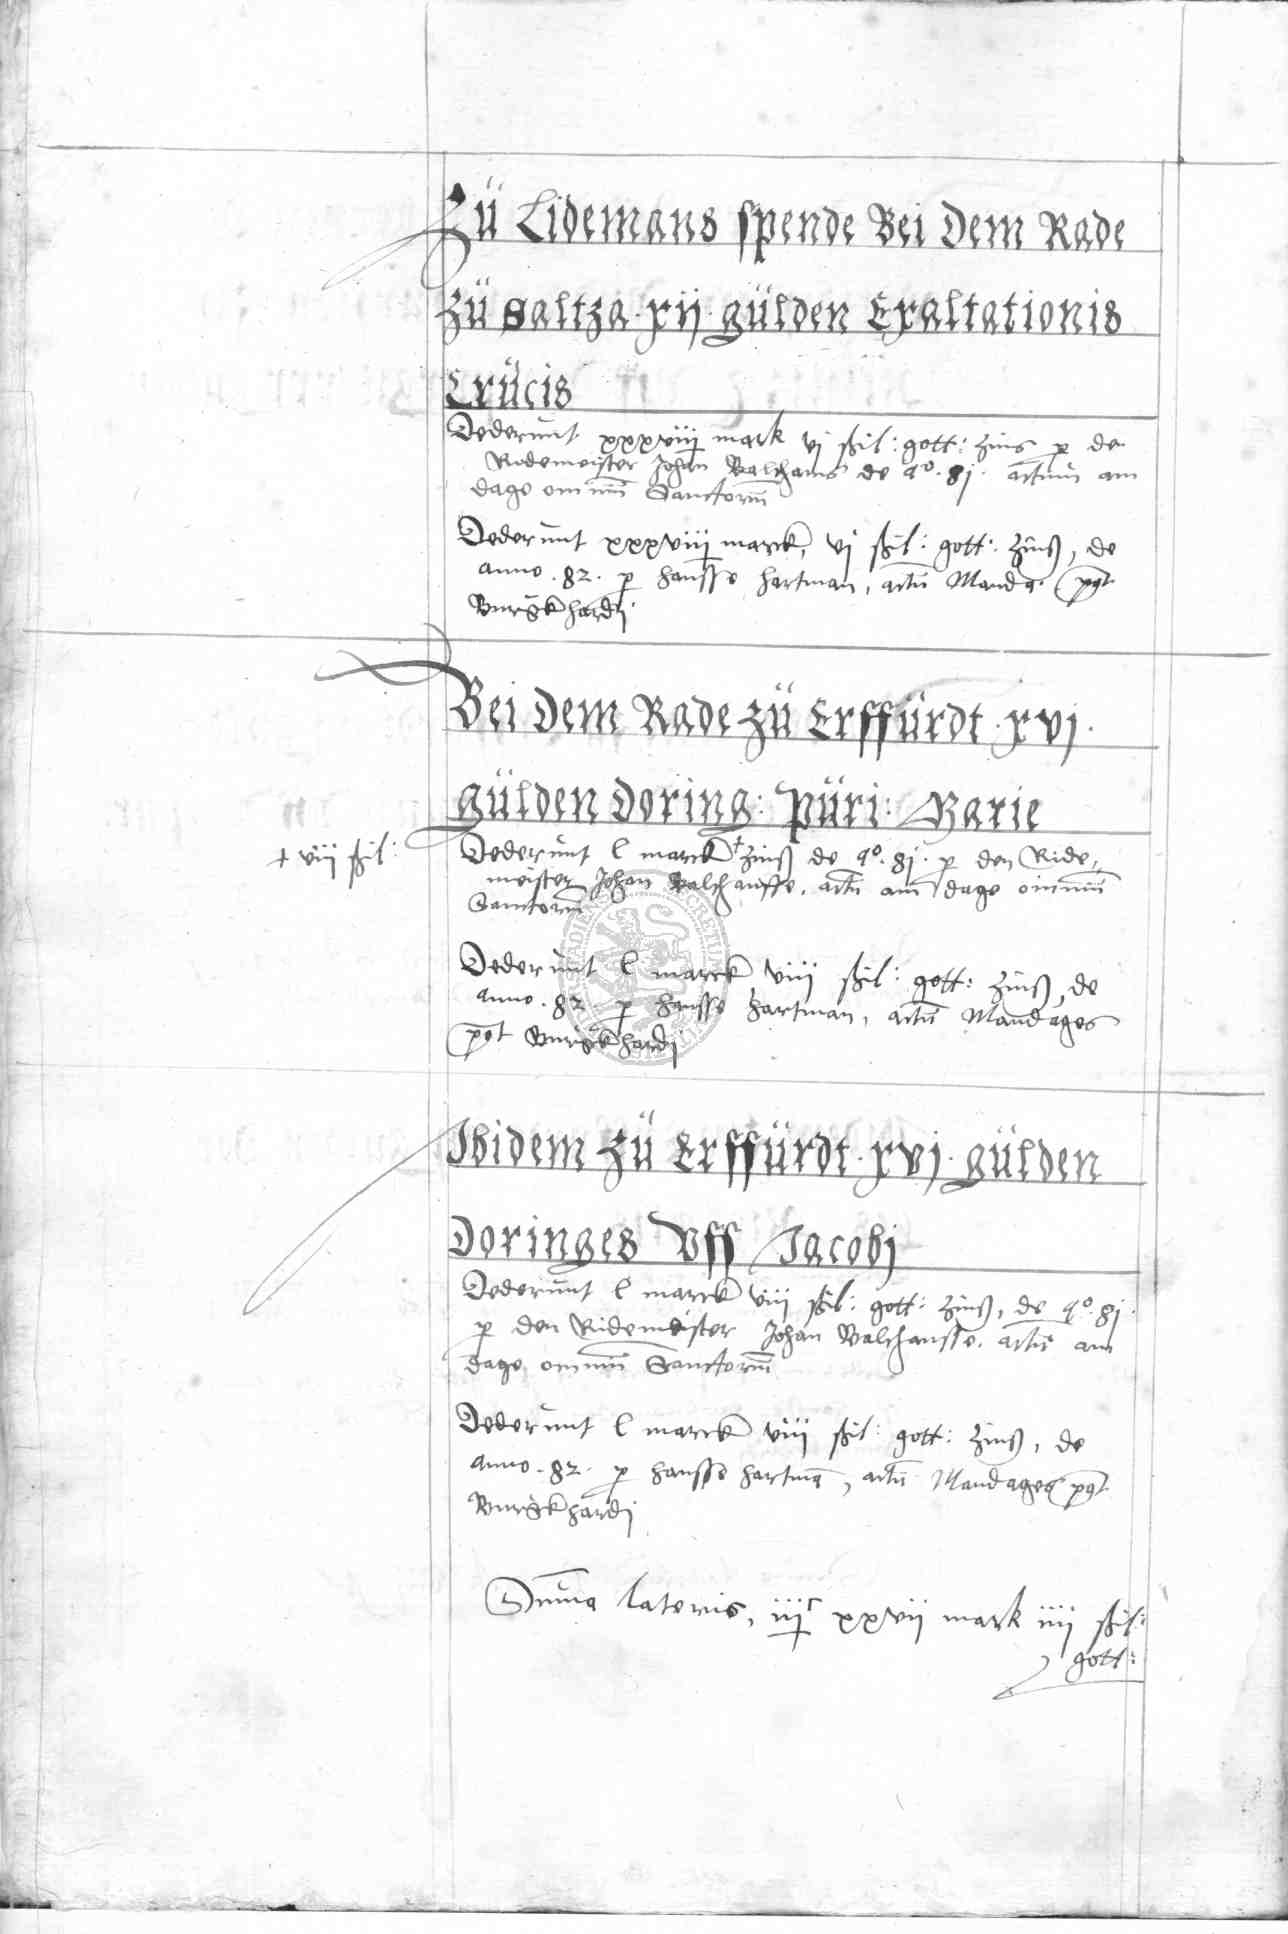 Zü Lidemans spende Bei Dem Rade
zü saltza · xij · gülden Exaltationis
Crücis
Dederunt xxxviij mark vj ßil: gott: zins p de
Rademeister Johan Balthaus de aº · 8j · actum am
dage omniū Sanctorū
Dederunt xxxviij marck, vj ßil: gott: zinß, de
anno · 82 · p hansse hartman, actū Manda: pꝰt
Burgkhardj
Bei Dem Rade zü Erffürdt · xvj ·
gülden Doring: püri: Marie
+ viij ßil:
Dederunt l marck + zinß de aº · 8j · p den Ride„
meister Johan Balthausse, actū am dage omniū
Sanctorū
Dederunt l marck viij ßil: gott: zinß, de
anno · 82 · p hansse hartman, actū Mandages
pꝰt Burgkhardj
Ibidem zü Erffürdt · xvj · gülden
Doringes Vff Jacobj
Dederunt l marck viij ßil: gott: zinß, de aº · 8j ·
p den Ridemeister Johan Balthausse, actū am
dage omniū Sanctorū
Dederunt l marck viij ßil: gott: zinß, de
anno · 82 · p hansse hartmā, actū Mandages pꝰt
Burgkhardj
Suma lateris, iijc xxvij mark iiij ßil:
gott: